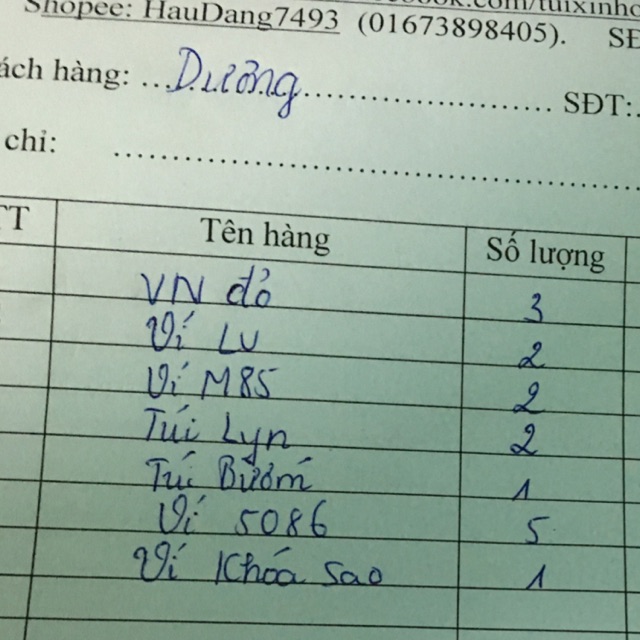 Shopee: HauDang7493 (01673898405). SĐ
ách hàng: ...Dương.............................. SĐT:.
chỉ: ............................................................
TT Tên hàng Số lượng
VN đỏ 3
Ví LV 2
Ví M85 2
Túi Lyn 2
Túi Bướm 1
Ví 5086 5
Ví Khóa Sao 1